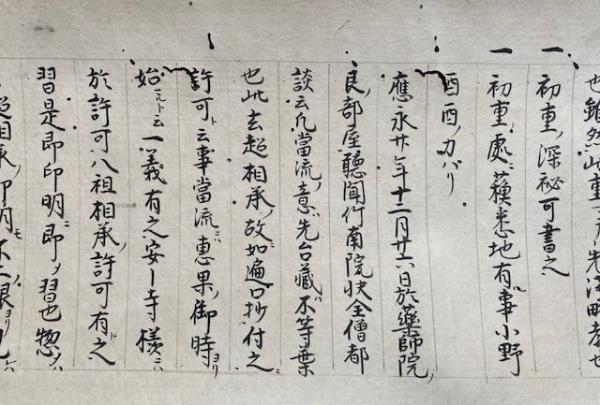 也雖然此重
一 初重ノ深祕可書之
一 初重ノ處ニ蘓悉地有事小野
酉酉ノカハリ
應永廿七年十二月廿六日於藥師院ノ
良ノ部屋聽聞竹南院快全僧都
談云凡當流ノ意ハ先台藏ハ不等葉
也此去超相承ノ故如遍口抄付之
許可ト云事當流ニハ惠果ノ御時ヨリ
始ルト云一義有之安一寺樣ニハ
於許可八祖相承ノ許可有之
習是即印明即ノ習也惣ノハ
超相承ノ印明モ不二